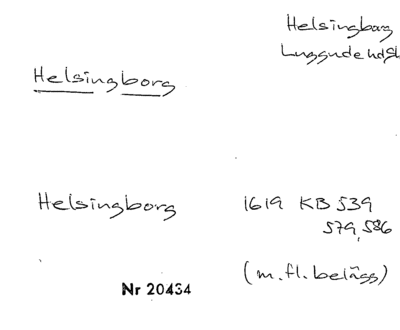 Helsingborg
Luggude hdsh
Helsingborg
Helsingborg 1619 KB 539
579, 586
(m.fl. belägg)
Nr 20434